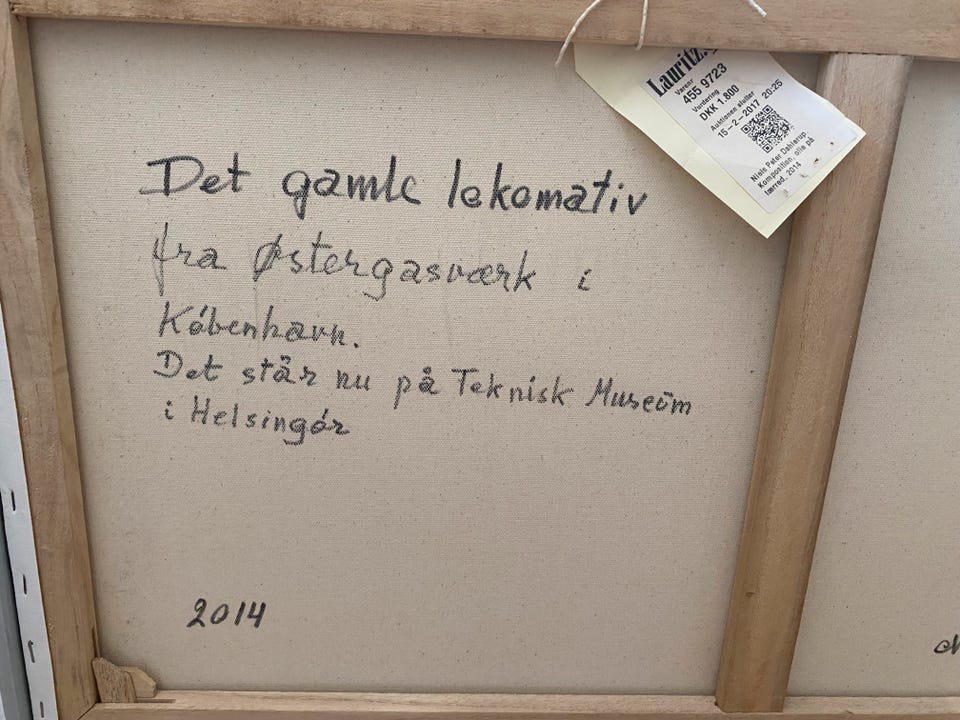 Det gamle lokomativ
fra Østergasværk i
København.
Det står nu på Teknisk Museum
i Helsingør
2014
Lauritz.
Varenr
455 9723
Vurdering
DKK 1.800
Auktionen slutter
15-2-2017 20:25
Niels Peter Dahlerup,
Komposition, olie på
lærred, 2014